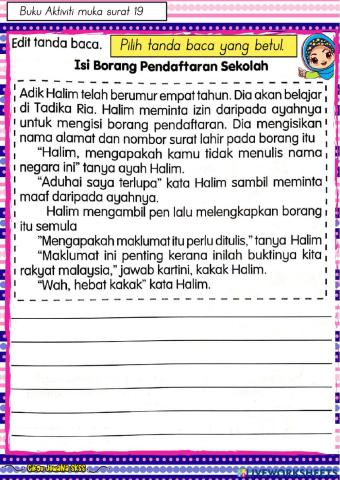 Buku Aktiviti muka surat 19
Edit tanda baca.
Pilih tanda baca yang betul.
Isi Borang Pendaftaran Sekolah
Adik Halim telah berumur empat tahun. Dia akan belajar
di Tadika Ria. Halim meminta izin daripada ayahnya
untuk mengisi borang pendaftaran. Dia mengisikan
nama alamat dan nombor surat lahir pada borang itu
“Halim, mengapakah kamu tidak menulis nama
negara ini” tanya ayah Halim.
“Aduhai saya terlupa” kata Halim sambil meminta
maaf daripada ayahnya.
Halim mengambil pen lalu melengkapkan borang
itu semula
”Mengapakah maklumat itu perlu ditulis,” tanya Halim
“Maklumat ini penting kerana inilah buktinya kita
rakyat malaysia,” jawab kartini, kakak Halim.
“Wah, hebat kakak” kata Halim.
LIVEWORKSHEETS